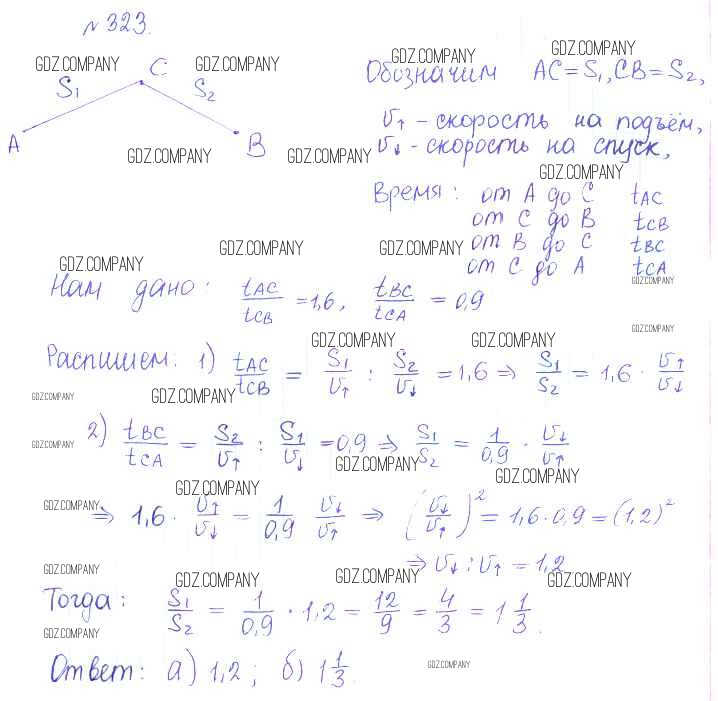 №323.
GDZ.COMPANY C GDZ.COMPANY GDZ.COMPANY GDZ.COMPANY
S₁ S₂ Обозначим AC=S₁, CB=S₂,
A B
GDZ.COMPANY GDZ.COMPANY
v↑ - скорость на подъём,
v↓ - скорость на спуск,
GDZ.COMPANY
Время: от A до C t_AC
от C до B t_CB
GDZ.COMPANY GDZ.COMPANY GDZ.COMPANY
от B до C t_BC
от C до A t_CA
GDZ.COMPANY
Нам дано: t_AC/t_CB = 1,6, t_BC/t_CA = 0,9
GDZ.COMPANY GDZ.COMPANY GDZ.COMPANY
Распишем: 1) t_AC/t_CB = S₁/v↑ : S₂/v↓ = 1,6 ⇒ S₁/S₂ = 1,6 · v↑/v↓
GDZ.COMPANY GDZ.COMPANY
2) t_BC/t_CA = S₂/v↑ : S₁/v↓ = 0,9 ⇒ S₁/S₂ = 1/0,9 · v↓/v↑
GDZ.COMPANY GDZ.COMPANY GDZ.COMPANY
GDZ.COMPANY GDZ.COMPANY
⇒ 1,6 · v↑/v↓ = 1/0,9 v↓/v↑ ⇒ (v↓/v↑)² = 1,6·0,9 = (1,2)²
⇒ v↓ : v↑ = 1,2
GDZ.COMPANY GDZ.COMPANY GDZ.COMPANY GDZ.COMPANY
Тогда: S₁/S₂ = 1/0,9 · 1,2 = 12/9 = 4/3 = 1 1/3.
GDZ.COMPANY
Ответ: а) 1,2; б) 1 1/3.
GDZ.COMPANY